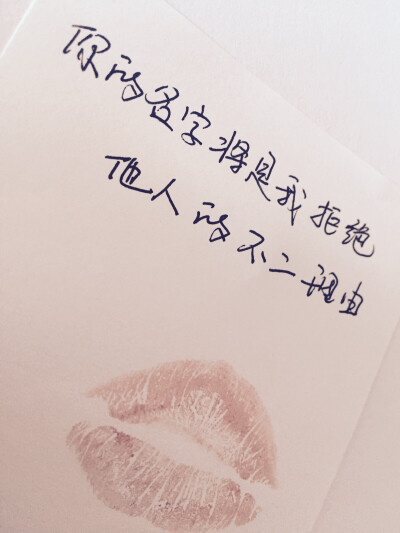 你的名字将是我拒绝
他人的不二理由